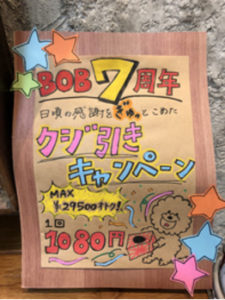 BOB7周年
日頃の感謝をぎゅっとこめた
クジ引き
キャンペーン
MAX
¥29500オトク!
1回
1080円